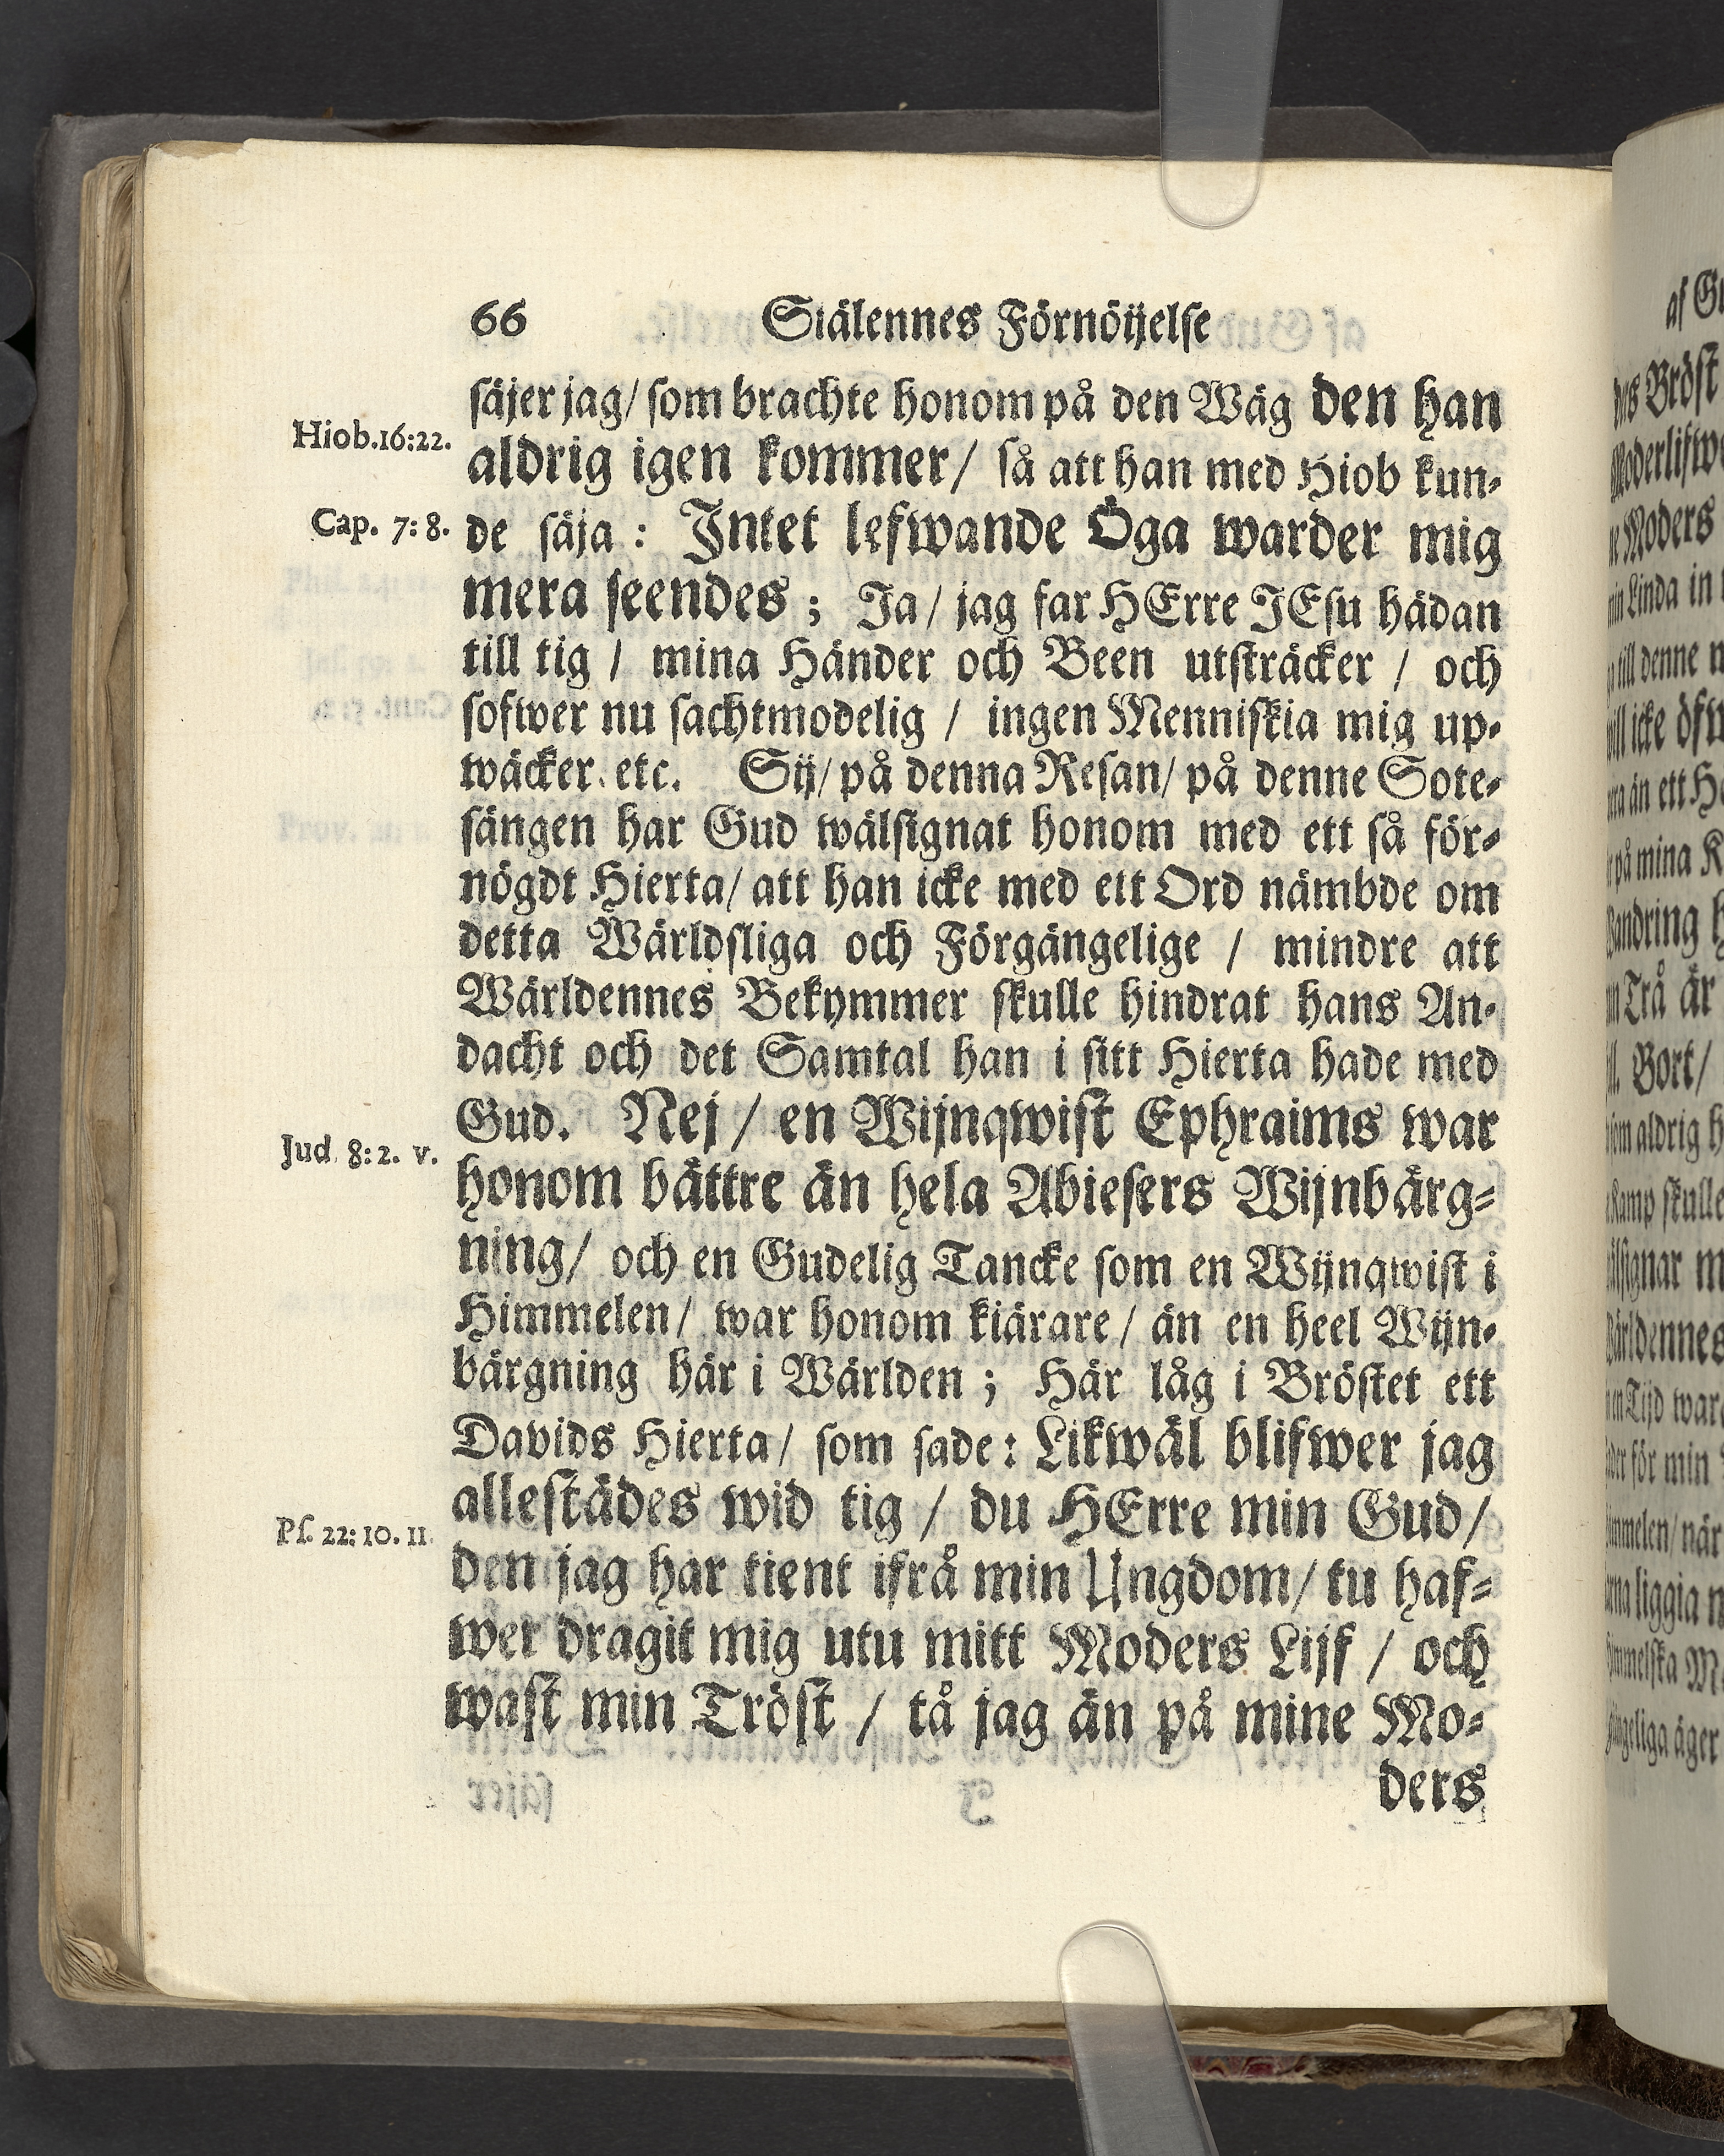 66 Siälennes Förnöijelse
säjer jag/ som brachte honom på den Wäg den han
Hiob.16:22.
aldrig igen kommer/ så att han med Hiob kun-
Cap. 7: 8.
de säja : Intet lefwande Öga warder mig
mera seendes ; Ja/ jag far HErre JEsu hädan
till tig / mina Händer och Been utsträcker / och
sofwer nu sachtmodelig / ingen Menniskia mig up-
wäcker. etc. Sij/ på denna Resan/ på denne Sote-
sängen har Gud wälsignat honom med ett så för-
nögdt Hierta/ att han icke med ett Ord nämbde om
detta Wärldsliga och Förgängelige / mindre att
Wärldennes Bekymmer skulle hindrat hans An-
dacht och det Samtal han i sitt Hierta hade med
Gud. Nej / en Wijnqwist Ephraims war
Jud. 8: 2. v.
honom bättre än hela Abiesers Wijnbärg-
ning/ och en Gudelig Tancke som en Wijnqwist i
Himmelen/ war honom kiärare/ än en heel Wijn-
bärgning här i Wärlden ; Här låg i Bröstet ett
Davids Hierta/ som sade: Likwäl blifwer jag
allestädes wid tig / du HErre min Gud/
Ps. 22: 10. 11
den jag har tient ifrå min Ungdom/ tu haf-
wer dragit mig utu mitt Moders Lijf / och
wast min Tröst / tå jag än på mine Mo-
ders